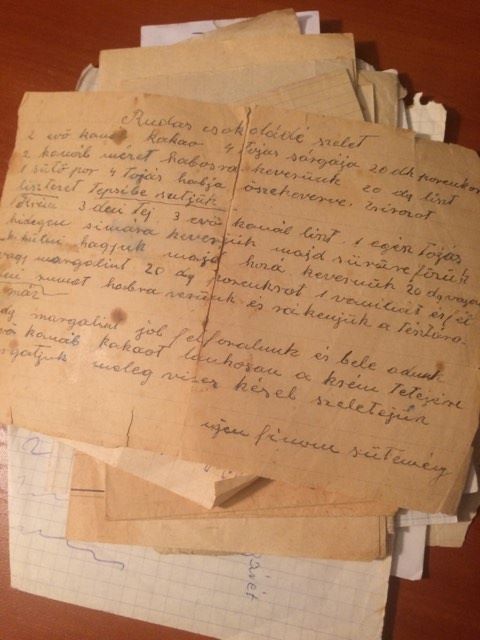 Rudas csokoládé szelet
2 evő kanál kakao 4 tojás sárgája 20 dk porcukor
2 kanál mézet habosra keverünk 20 dg liszt
1 sütő por 4 tojás habja összekeverve. Zsirozot
liszteset tepsibe sütjük
Krém 3 deci tej 3 evő kanál liszt 1 egész tojás
hidegen simára keverjük majd sürüre főzük
hülni hagyjuk majd hozá keverünk 20 dg vajat
vagy margarint 20 dg porcukrot 1 vaniliás és fél
rumot habra verünk és rá kenjük a tésztára.
máz
margarint jól felforalunk és bele adunk
kanál kakaot lanhosan a krém tetejére
meleg vizes késel szeletejük
igen finom sütemény